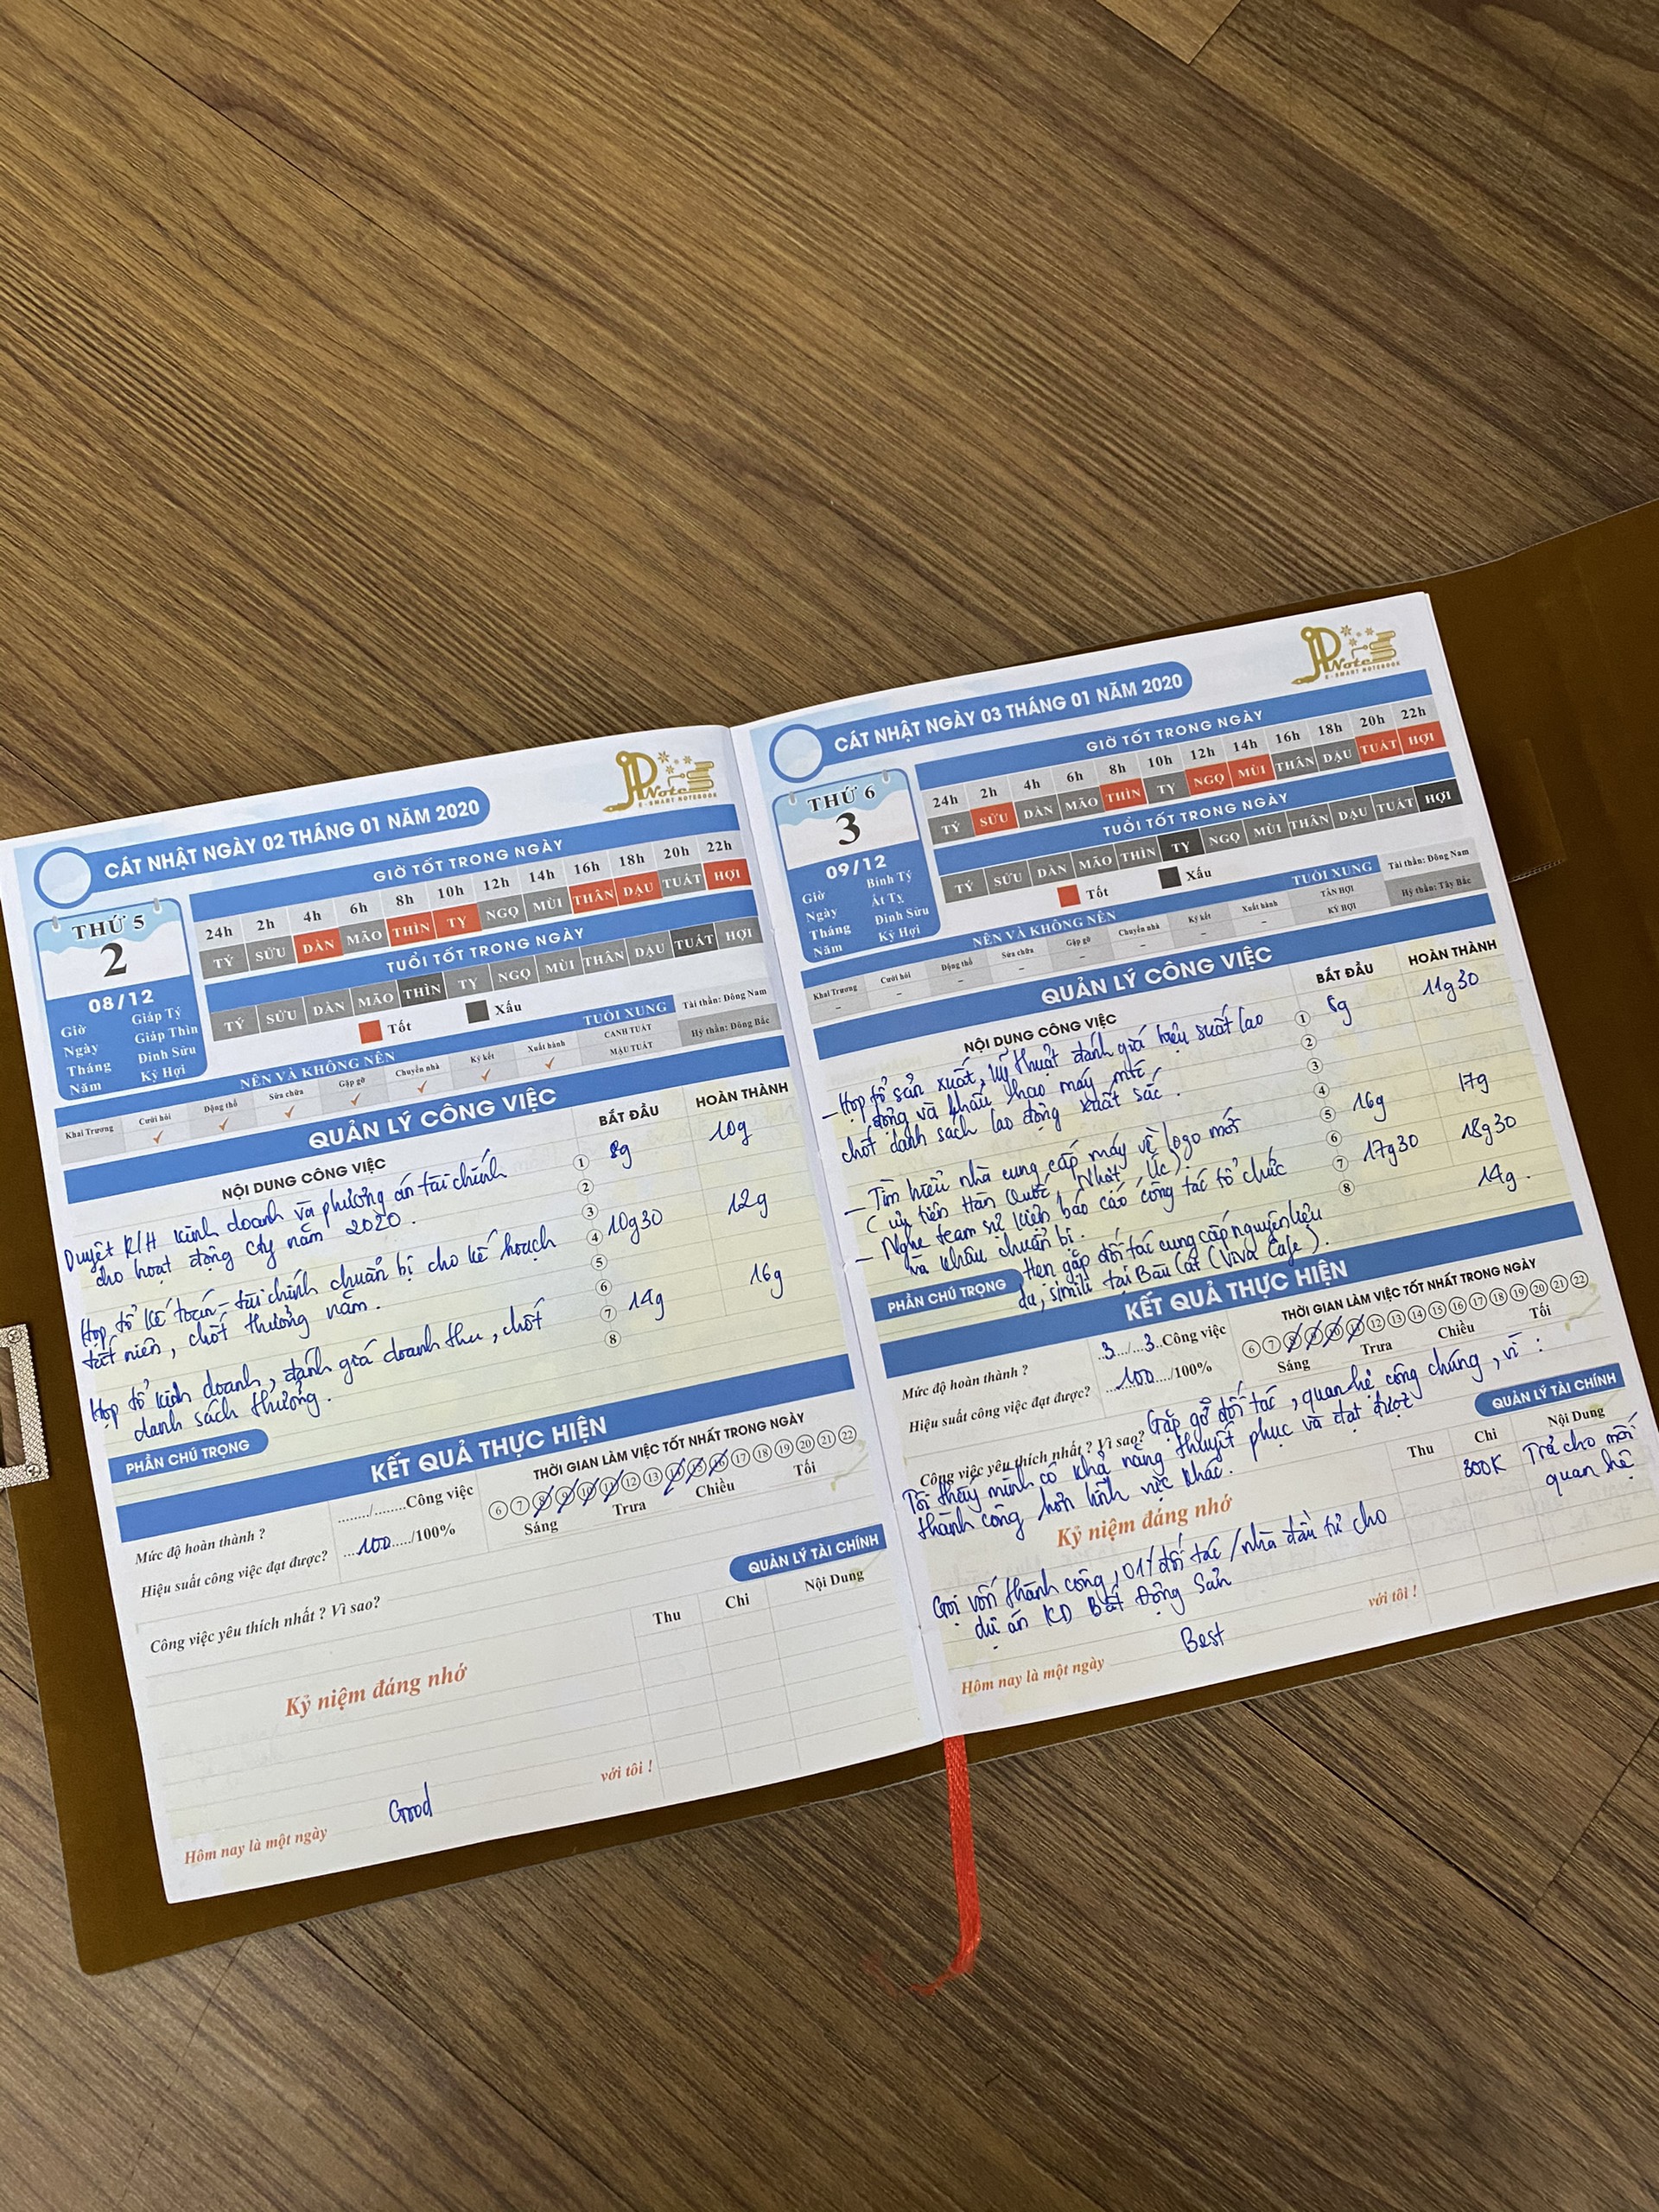 CÁT NHẬT NGÀY 02 THÁNG 01 NĂM 2020
JP Note
E-SMART NOTEBOOK
THỨ 5
2
08/12
Giờ Giáp Tý
Ngày Giáp Thìn
Tháng Đinh Sửu
Năm Kỷ Hợi
GIỜ TỐT TRONG NGÀY
24h 2h 4h 6h 8h 10h 12h 14h 16h 18h 20h 22h
TÝ SỬU DẦN MÃO THÌN TỴ NGỌ MÙI THÂN DẬU TUẤT HỢI
TUỔI TỐT TRONG NGÀY
TÝ SỬU DẦN MÃO THÌN TỴ NGỌ MÙI THÂN DẬU TUẤT HỢI
Tốt Xấu
NÊN VÀ KHÔNG NÊN TUỔI XUNG Tài thần: Đông Nam
Khai Trương Cưới hỏi Động thổ Sửa chữa Gặp gỡ Chuyển nhà Ký kết Xuất hành CANH TUẤT Hỷ thần: Đông Bắc
✓ ✓ ✓ ✓ ✓ ✓ ✓ MẬU TUẤT
QUẢN LÝ CÔNG VIỆC
NỘI DUNG CÔNG VIỆC BẮT ĐẦU HOÀN THÀNH
Duyệt K/H kinh doanh và phương án tài chính 1 8g 10g
cho hoạt động cty năm 2020. 2
3
Họp tổ kế toán - tài chính chuẩn bị cho kế hoạch 4 10g30 12g
tất niên, chốt thưởng năm. 5
6
Họp tổ kinh doanh, đánh giá doanh thu, chốt 7 14g 16g
danh sách thưởng. 8
PHẦN CHÚ TRỌNG
KẾT QUẢ THỰC HIỆN
Mức độ hoàn thành ? ......../........Công việc
THỜI GIAN LÀM VIỆC TỐT NHẤT TRONG NGÀY
6 7 8 9 10 11 12 13 14 15 16 17 18 19 20 21 22
Sáng Trưa Chiều Tối
Hiệu suất công việc đạt được? ...100...../100%
Công việc yêu thích nhất ? Vì sao?
QUẢN LÝ TÀI CHÍNH
Thu Chi Nội Dung
Kỷ niệm đáng nhớ
Hôm nay là một ngày Good với tôi !
CÁT NHẬT NGÀY 03 THÁNG 01 NĂM 2020
JP Note
E-SMART NOTEBOOK
THỨ 6
3
09/12
Giờ Bính Tý
Ngày Ất Tỵ
Tháng Đinh Sửu
Năm Kỷ Hợi
GIỜ TỐT TRONG NGÀY
24h 2h 4h 6h 8h 10h 12h 14h 16h 18h 20h 22h
TÝ SỬU DẦN MÃO THÌN TỴ NGỌ MÙI THÂN DẬU TUẤT HỢI
TUỔI TỐT TRONG NGÀY
TÝ SỬU DẦN MÃO THÌN TỴ NGỌ MÙI THÂN DẬU TUẤT HỢI
Tốt Xấu
NÊN VÀ KHÔNG NÊN TUỔI XUNG Tài thần: Đông Nam
Khai Trương Cưới hỏi Động thổ Sửa chữa Gặp gỡ Chuyển nhà Ký kết Xuất hành TÂN HỢI Hỷ thần: Tây Bắc
– – – – – – – – KỶ HỢI
QUẢN LÝ CÔNG VIỆC
NỘI DUNG CÔNG VIỆC BẮT ĐẦU HOÀN THÀNH
– Họp tổ sản xuất, kỹ thuật đánh giá hiệu suất lao 1 8g 11g30
động và khấu hao máy móc 2
chốt danh sách lao động xuất sắc. 3
– Tìm hiểu nhà cung cấp máy vẽ logo mới 4 16g 17g
(ưu tiên Hàn Quốc, Nhật, Úc). 5
– Nghe team sự kiện báo cáo công tác tổ chức 6 17g30 18g30
và khâu chuẩn bị. 7
8
PHẦN CHÚ TRỌNG Hẹn gặp đối tác cung cấp nguyên liệu 14g.
da, simili tại Bàu Cát (Viva Cafe).
KẾT QUẢ THỰC HIỆN
Mức độ hoàn thành ? ..3.../...3..Công việc
THỜI GIAN LÀM VIỆC TỐT NHẤT TRONG NGÀY
6 7 8 9 10 11 12 13 14 15 16 17 18 19 20 21 22
Sáng Trưa Chiều Tối
Hiệu suất công việc đạt được? ...100...../100%
Công việc yêu thích nhất ? Vì sao? Gặp gỡ đối tác, quan hệ công chúng, vì :
Tôi thấy mình có khả năng thuyết phục và đạt được
thành công hơn lĩnh vực khác.
QUẢN LÝ TÀI CHÍNH
Thu Chi Nội Dung
300K Trả cho mối
quan hệ
Kỷ niệm đáng nhớ
Gọi vốn thành công, 01 đối tác / nhà đầu tư cho
dự án KD Bất Động Sản
Hôm nay là một ngày Best với tôi !